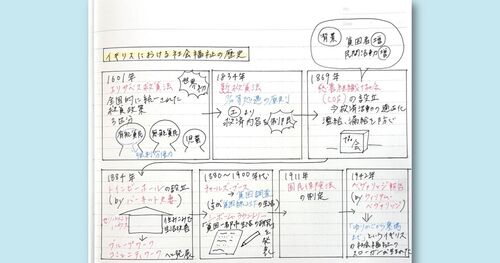 イギリスにおける社会福祉の歴史
背景
貧困者増
民間活動増
1601年
エリザベス救貧法
世界初
全国的に統一された
救貧政策
3区分
有能貧民
無能貧民
児童
強制労働
1834年
新救貧法
劣等処遇の原則
より
救済内容を制限
1869年
慈善組織協会
(COS)の設立
→救済活動の適正化
濫給、漏給を防ぐ
協会
1884年
トインビーホールの設立
(by バーネット夫妻)
グループワーク
コミュニティワークへ発展
1880〜1900年代
チャールズ・ブース
→貧困調査
シーボーム・ラウントリー
『貧困-都市生活の研究』
を発表
1911年
国民保険法
の制定
1942年
ベヴァリッジ報告
(by ウィリアム・
ベヴァリッジ)
「ゆりかごから墓場
まで」というイギリス
の社会福祉の
スローガンが生まれた